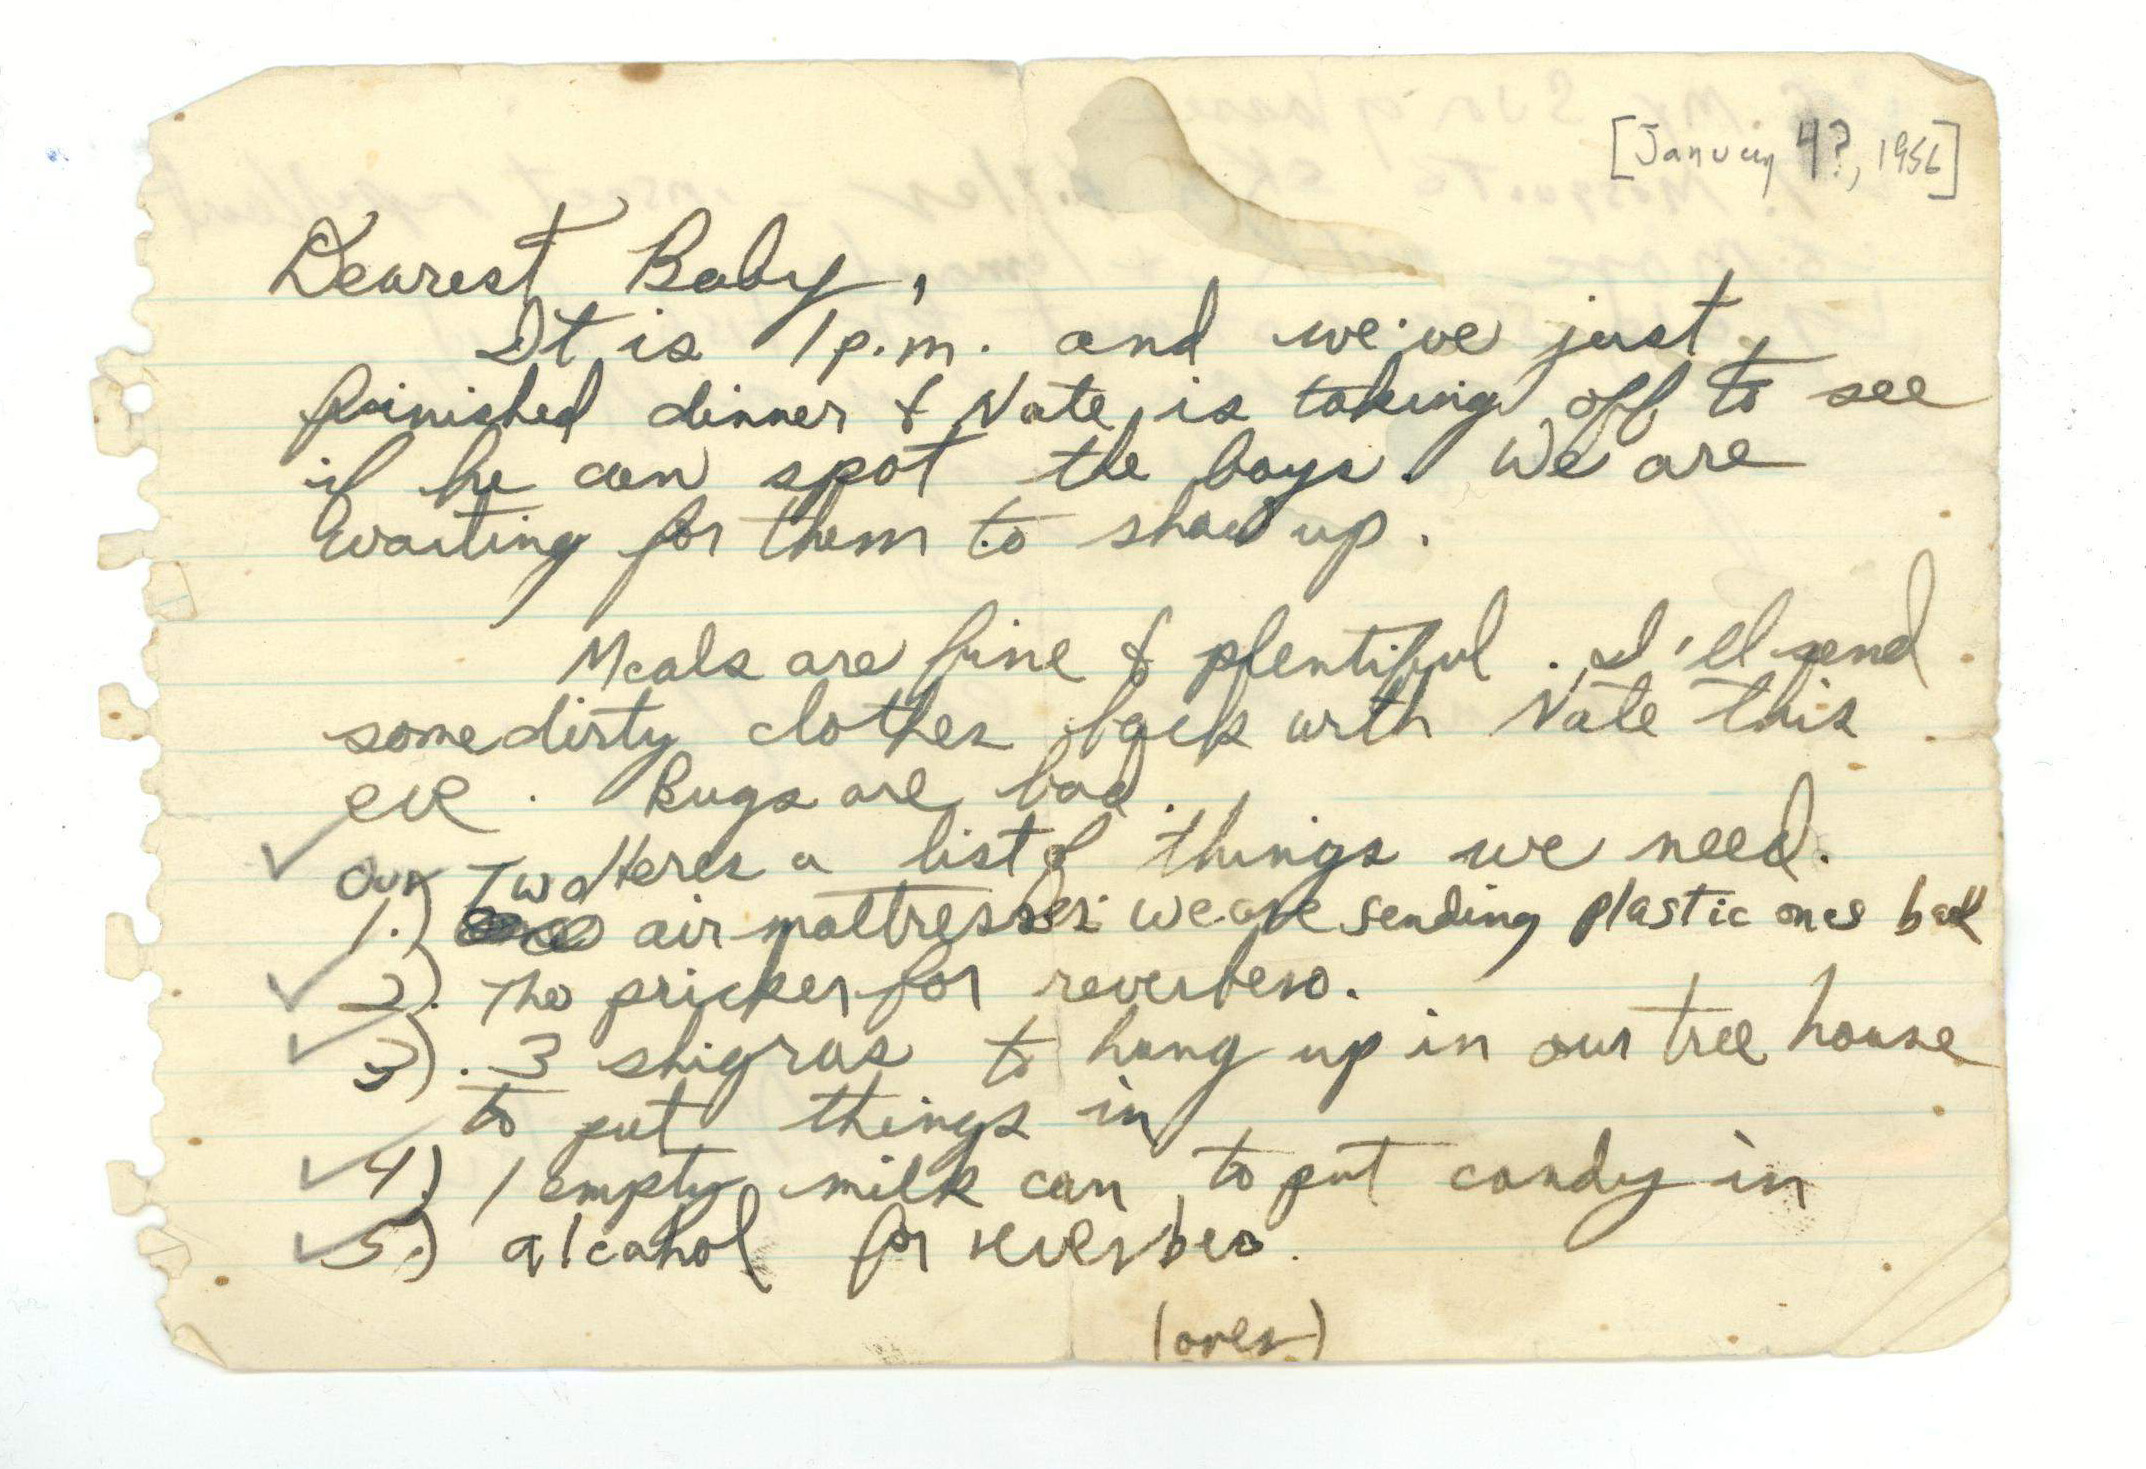 [January 4?, 1956]
Dearest Baby,
It is 1 p.m. and we've just
finished dinner & Nate is taking off to see
if he can spot the boys. We are
waiting for them to show up.
Meals are fine & plentiful. I'll send
some dirty clothes back with Nate this
eve. Bugs are bad.
Heres a list of things we need.
1.) Our Two air mattresses: we are sending plastic ones back
2). The pricker for reverbero.
3). 3 shigras to hang up in our tree house
to put things in
4.) 1 empty milk can, to put candy in
5.) alcahol for reverbero.
(over)